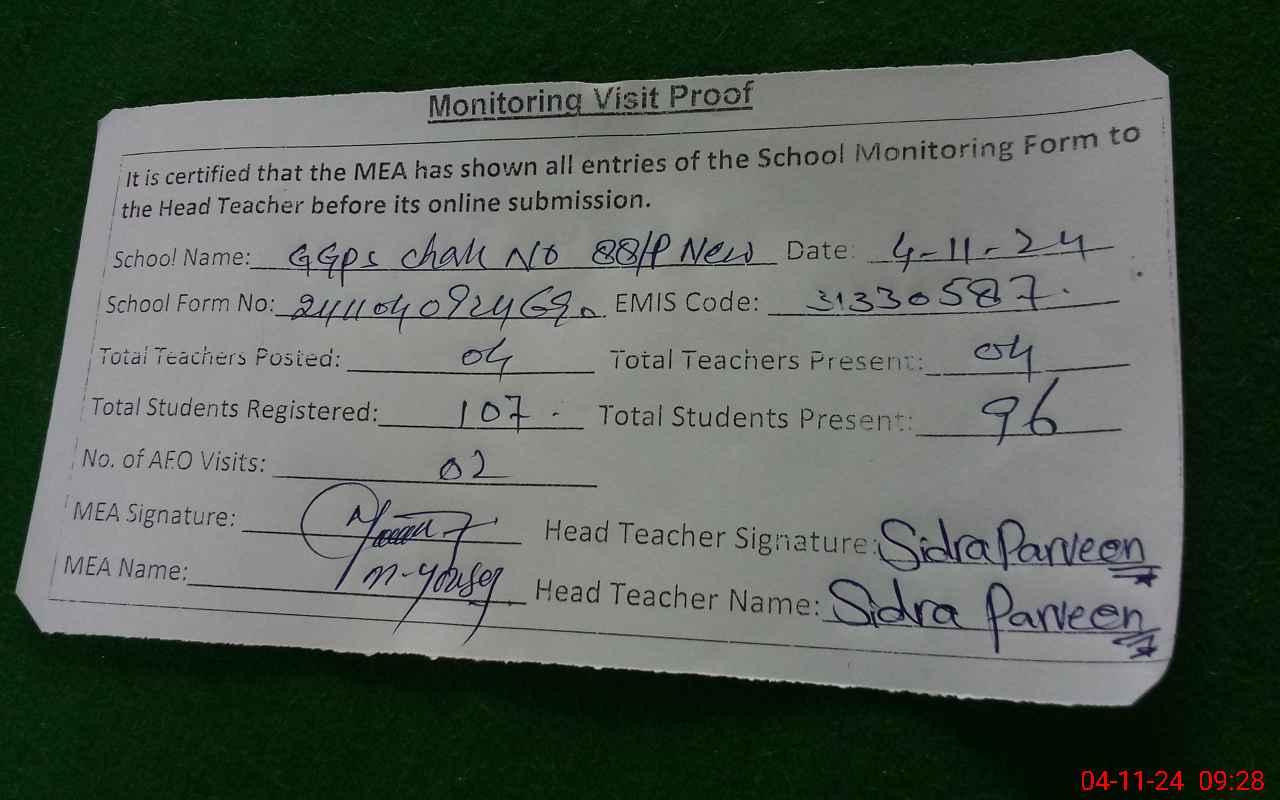 Monitoring Visit Proof
It is certified that the MEA has shown all entries of the School Monitoring Form to
the Head Teacher before its online submission.
School Name: GGPS Chak No 88/P New Date: 4-11-24
School Form No: EMIS Code: 31330587
Total Teachers Posted: 04 Total Teachers Present: 04
Total Students Registered: 107 Total Students Present: 96
No. of AEO Visits: 02
MEA Signature: Head Teacher Signature: Sidra Parveen
MEA Name: Head Teacher Name: Sidra Parveen
04-11-24 09:28